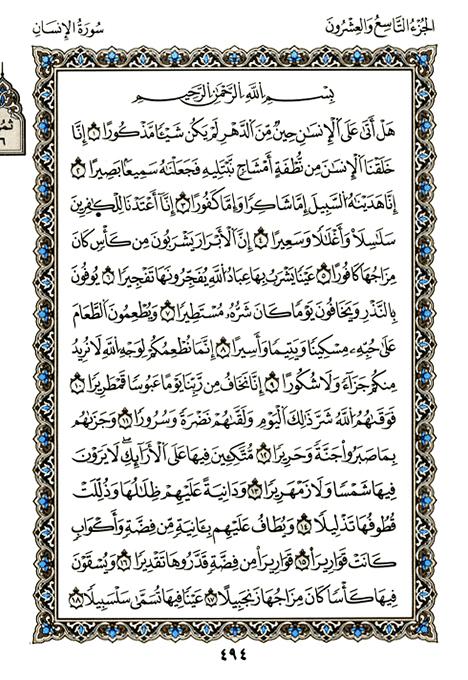 الجُزْءُ التَّاسِعُ وَالعِشْرُونَ
سُورَةُ الإِنسَانِ
بِسْمِ اللَّهِ الرَّحْمَٰنِ الرَّحِيمِ
هَلْ أَتَىٰ عَلَى الْإِنسَانِ حِينٌ مِّنَ الدَّهْرِ لَمْ يَكُن شَيْئًا مَّذْكُورًا ١ إِنَّا
خَلَقْنَا الْإِنسَانَ مِن نُّطْفَةٍ أَمْشَاجٍ نَّبْتَلِيهِ فَجَعَلْنَاهُ سَمِيعًا بَصِيرًا ٢
إِنَّا هَدَيْنَاهُ السَّبِيلَ إِمَّا شَاكِرًا وَإِمَّا كَفُورًا ٣ إِنَّا أَعْتَدْنَا لِلْكَافِرِينَ
سَلَاسِلَا۟ وَأَغْلَالًا وَسَعِيرًا ٤ إِنَّ الْأَبْرَارَ يَشْرَبُونَ مِن كَأْسٍ كَانَ
مِزَاجُهَا كَافُورًا ٥ عَيْنًا يَشْرَبُ بِهَا عِبَادُ اللَّهِ يُفَجِّرُونَهَا تَفْجِيرًا ٦ يُوفُونَ
بِالنَّذْرِ وَيَخَافُونَ يَوْمًا كَانَ شَرُّهُ مُسْتَطِيرًا ٧ وَيُطْعِمُونَ الطَّعَامَ
عَلَىٰ حُبِّهِ مِسْكِينًا وَيَتِيمًا وَأَسِيرًا ٨ إِنَّمَا نُطْعِمُكُمْ لِوَجْهِ اللَّهِ لَا نُرِيدُ
مِنكُمْ جَزَاءً وَلَا شُكُورًا ٩ إِنَّا نَخَافُ مِن رَّبِّنَا يَوْمًا عَبُوسًا قَمْطَرِيرًا ١٠
فَوَقَاهُمُ اللَّهُ شَرَّ ذَٰلِكَ الْيَوْمِ وَلَقَّاهُمْ نَضْرَةً وَسُرُورًا ١١ وَجَزَاهُم
بِمَا صَبَرُوا جَنَّةً وَحَرِيرًا ١٢ مُّتَّكِئِينَ فِيهَا عَلَى الْأَرَائِكِ ۖ لَا يَرَوْنَ
فِيهَا شَمْسًا وَلَا زَمْهَرِيرًا ١٣ وَدَانِيَةً عَلَيْهِمْ ظِلَالُهَا وَذُلِّلَتْ
قُطُوفُهَا تَذْلِيلًا ١٤ وَيُطَافُ عَلَيْهِم بِآنِيَةٍ مِّن فِضَّةٍ وَأَكْوَابٍ
كَانَتْ قَوَارِيرَا۠ ١٥ قَوَارِيرَا۟ مِن فِضَّةٍ قَدَّرُوهَا تَقْدِيرًا ١٦ وَيُسْقَوْنَ
فِيهَا كَأْسًا كَانَ مِزَاجُهَا زَنجَبِيلًا ١٧ عَيْنًا فِيهَا تُسَمَّىٰ سَلْسَبِيلًا ١٨
٤٩٤